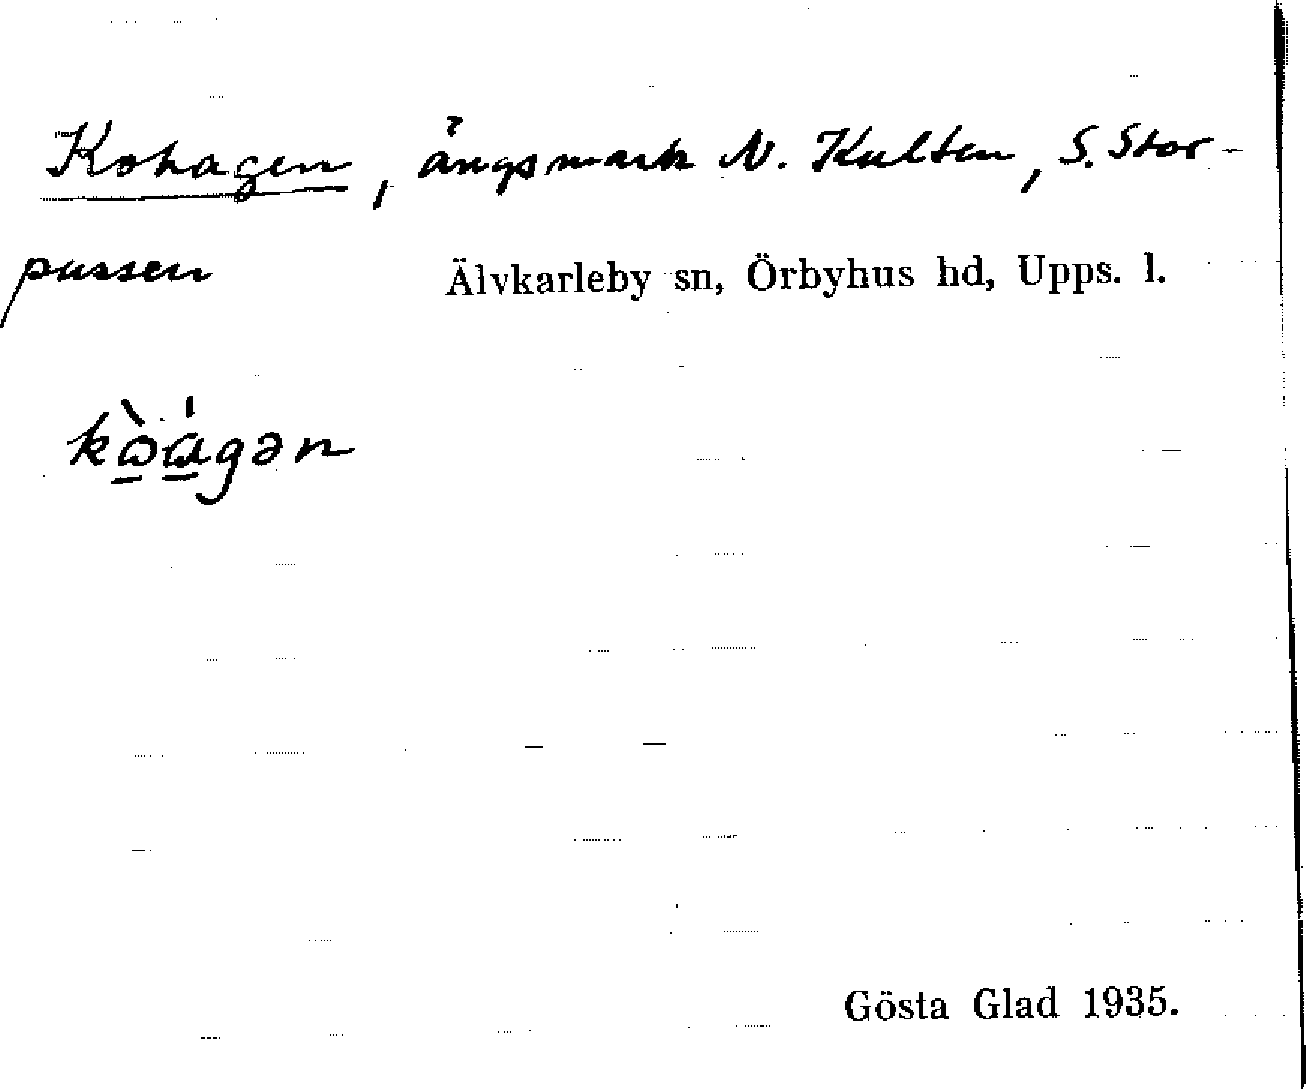 Kohagen, ängsmark N. Kulten, S. Stor-
pussen
Älvkarleby sn, Örbyhus hd, Upps. l.
kὼ̱ɑ̱́gən
Gösta Glad 1935.